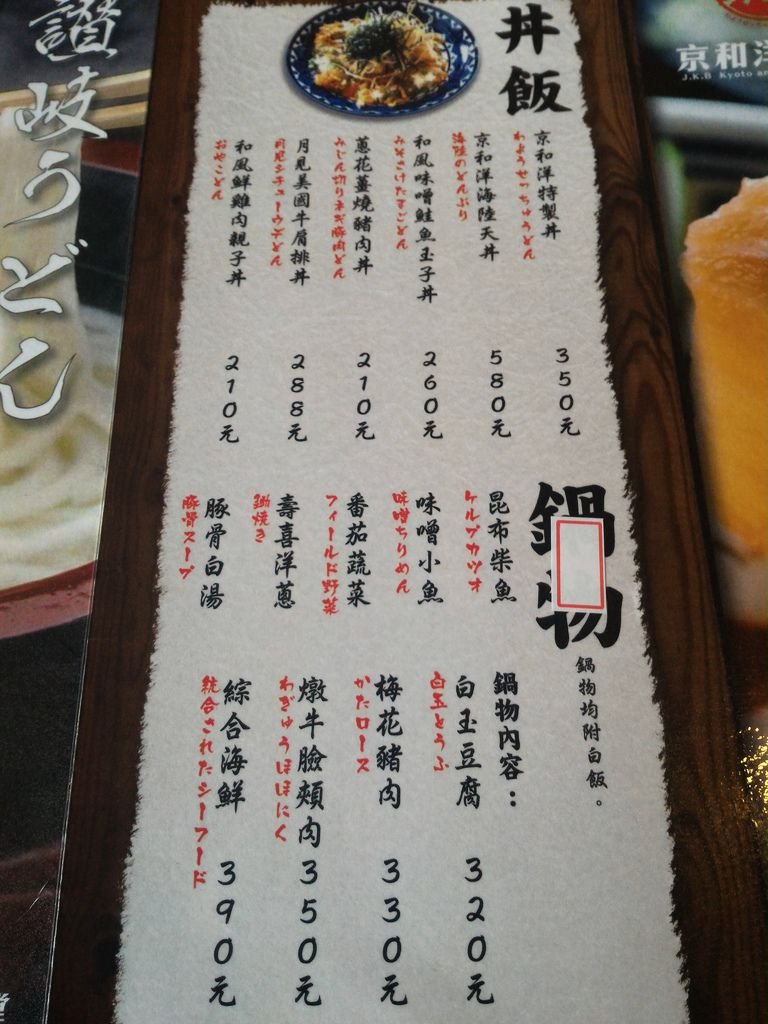 讃岐うどん
丼飯
京和洋特製丼
わようせっちゅうどん
350元
京和洋海陸天丼
海陸のどんぶり
580元
和風味噌鮭魚玉子丼
みそさけたまごどん
260元
蔥花薑燒豬肉丼
みじん切りネギ豚肉どん
210元
月見美國牛肩排丼
月見シチューウデどん
288元
和風鮮雞肉親子丼
おやこどん
210元
鍋物
鍋物均附白飯。
昆布柴魚
ケルプカツオ
味噌小魚
味噌ちりめん
番茄蔬菜
フィールド野菜
壽喜洋蔥
鋤焼き
豚骨白湯
豚骨スープ
鍋物內容：
白玉豆腐
白玉とうふ
320元
梅花豬肉
かたロース
330元
燉牛臉頰肉
わぎゅうほほにく
350元
綜合海鮮
統合されたシーフード
390元
京和洋
J.K.B Kyoto an